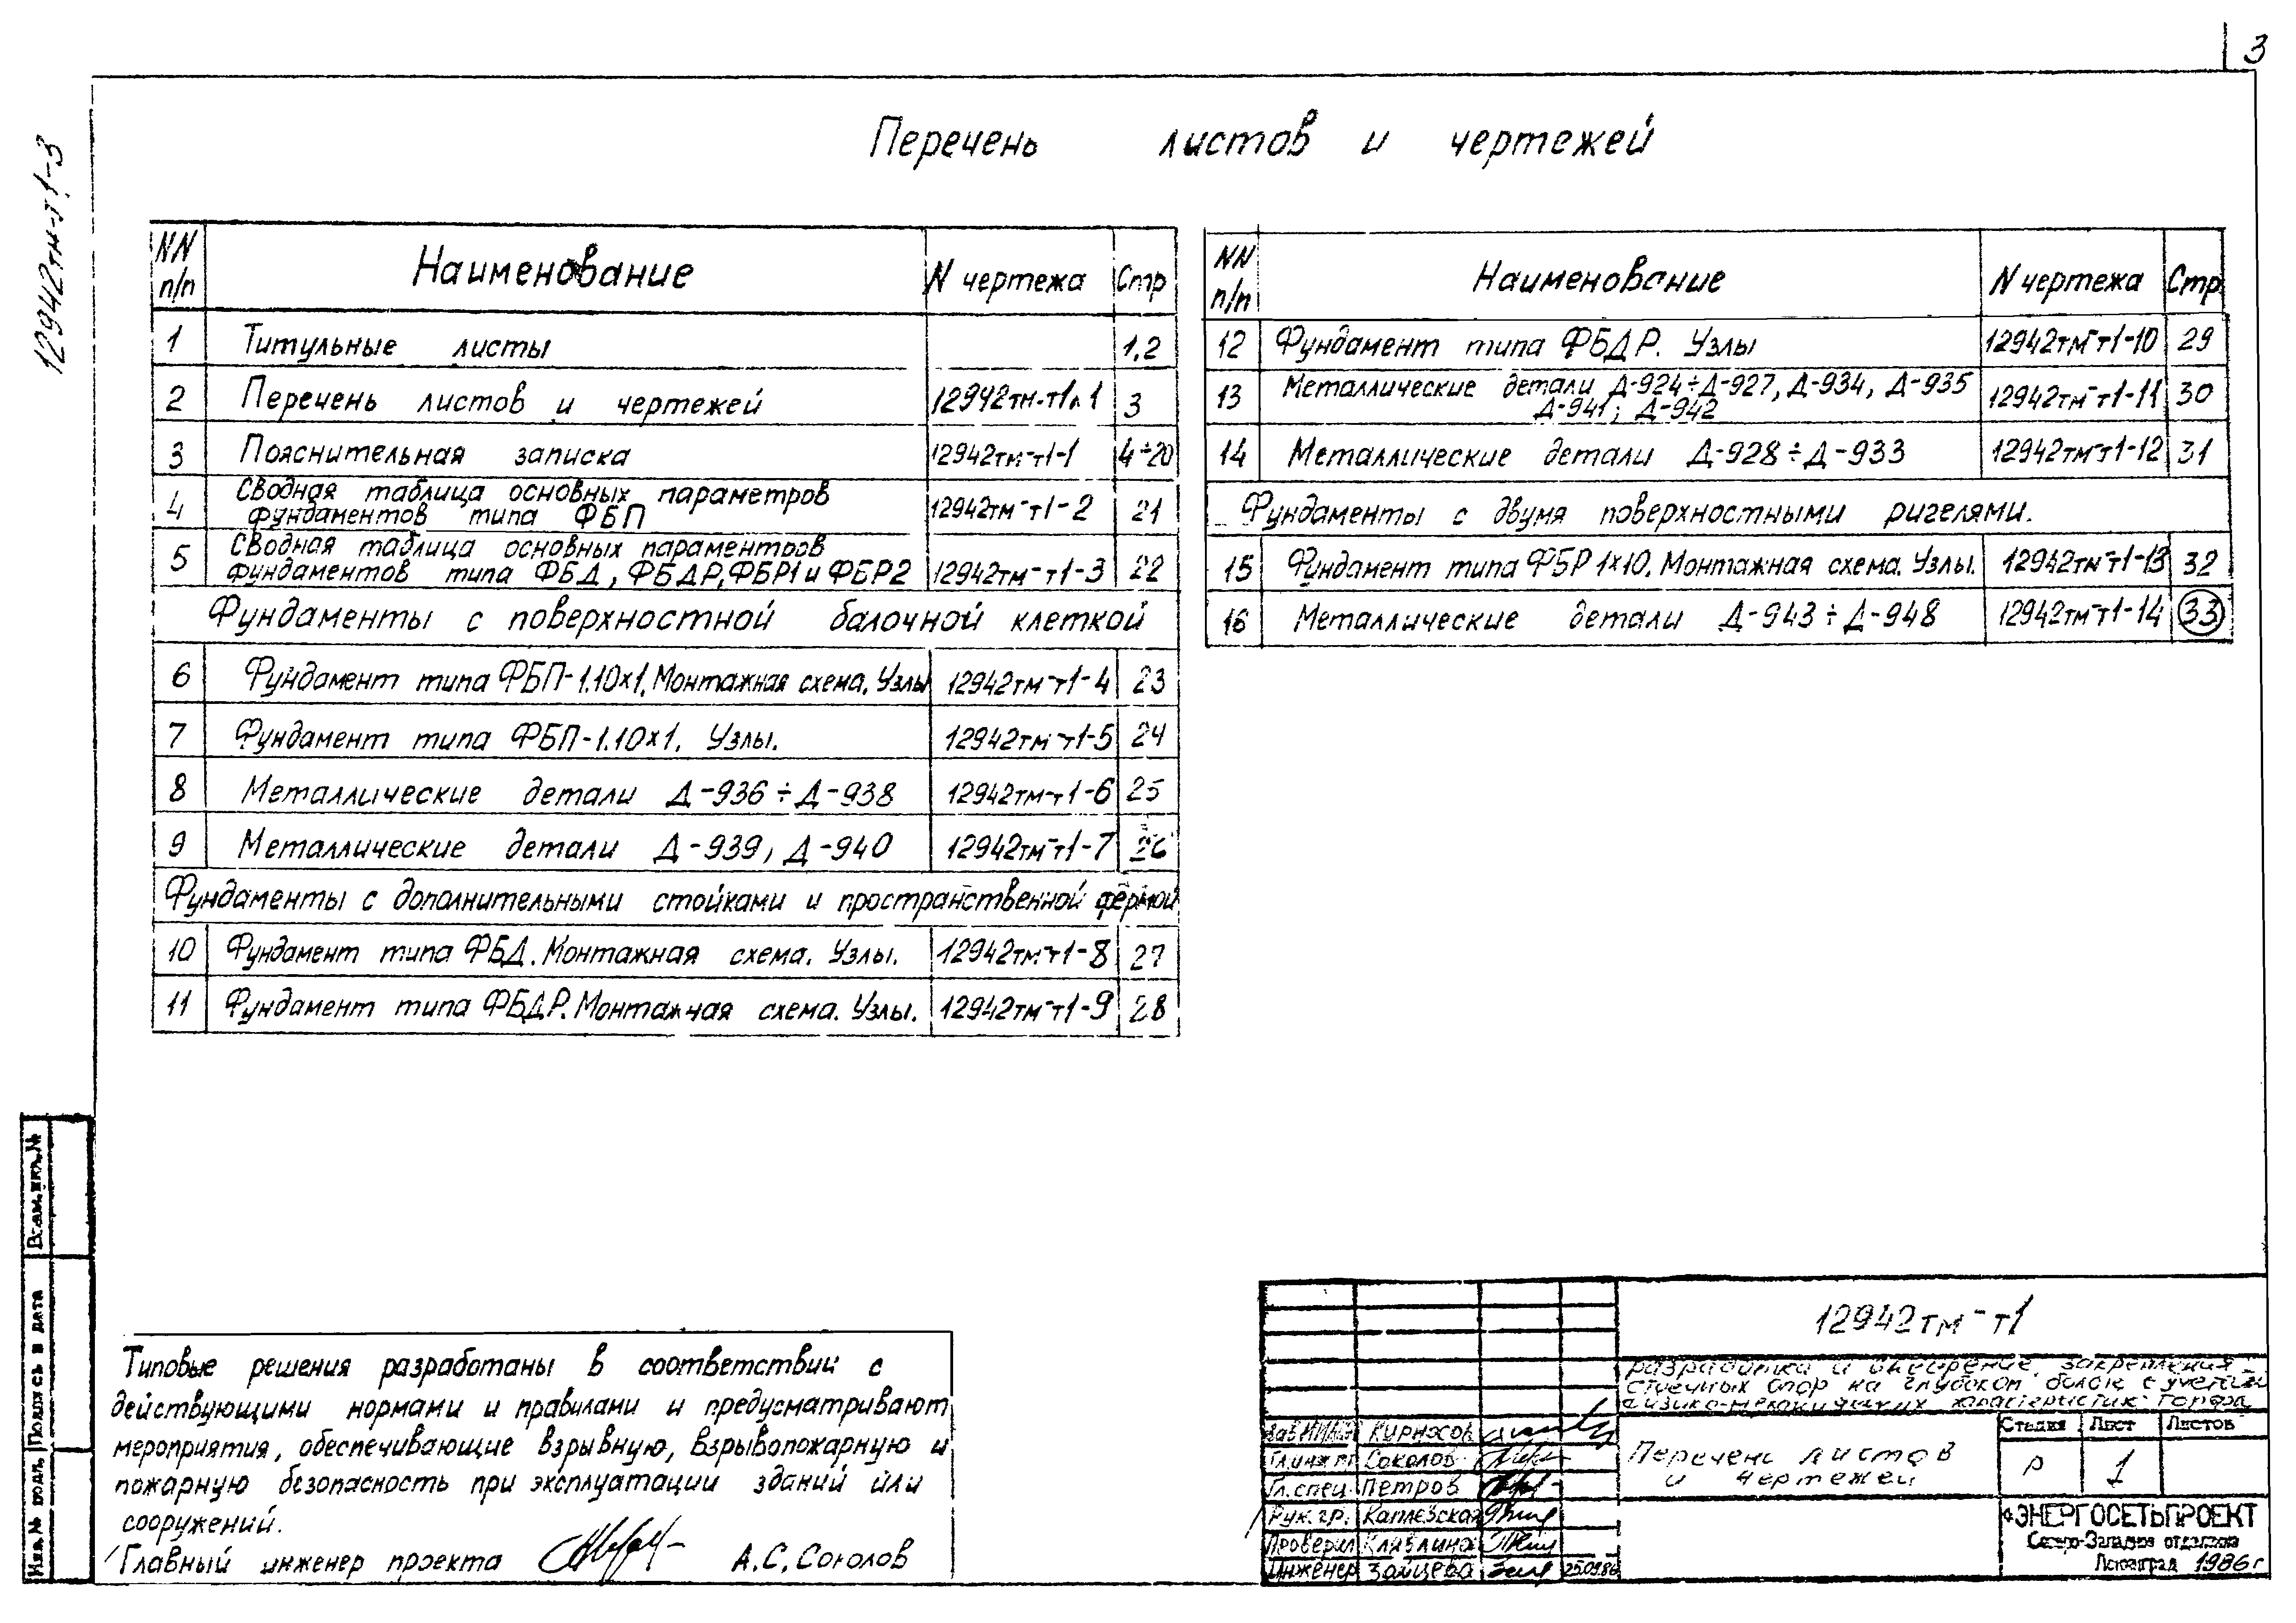 3
12942тм-т1-3
Перечень листов и чертежей
NN п/п Наименование N чертежа Стр
1 Титульные листы 1,2
2 Перечень листов и чертежей 12942тм-т1л.1 3
3 Пояснительная записка 12942тм-т1-1 4÷20
4 Сводная таблица основных параметров
фундаментов типа ФБП 12942тм-т1-2 21
5 Сводная таблица основных параментров
фундаментов типа ФБД, ФБДР, ФБР1 и ФБР2 12942тм-т1-3 22
Фундаменты с поверхностной балочной клеткой
6 Фундамент типа ФБП-1.10х1. Монтажная схема. Узлы 12942тм-т1-4 23
7 Фундамент типа ФБП-1.10х1. Узлы. 12942тм-т1-5 24
8 Металлические детали Д-936÷Д-938 12942тм-т1-6 25
9 Металлические детали Д-939, Д-940 12942тм-т1-7 26
Фундаменты с дополнительными стойками и пространственной фермой
10 Фундамент типа ФБД. Монтажная схема. Узлы. 12942тм-т1-8 27
11 Фундамент типа ФБДР. Монтажная схема. Узлы. 12942тм-т1-9 28
NN п/п Наименование N чертежа Стр
12 Фундамент типа ФБДР. Узлы 12942тм-т1-10 29
13 Металлические детали Д-924÷Д-927, Д-934, Д-935
Д-941, Д-942 12942тм-т1-11 30
14 Металлические детали Д-928÷Д-933 12942тм-т1-12 31
Фундаменты с двумя поверхностными ригелями.
15 Фундамент типа ФБР 1х10. Монтажная схема. Узлы. 12942тм-т1-13 32
16 Металлические детали Д-943÷Д-948 12942тм-т1-14 33
Типовые решения разработаны в соответствии с
действующими нормами и правилами и предусматривают
мероприятия, обеспечивающие взрывную, взрывопожарную и
пожарную безопасность при эксплуатации зданий или
сооружений.
Главный инженер проекта А.С. Соколов
Взам.инв.№
Подпись и дата
Инв.№ подл.
12942тм-т1
разработка и внедрение закрепления
стоечных опор на глубоких болотах с учетом
физико-механических характеристик торфа
Перечень листов
и чертежей
Стадия Лист Листов
Р 1
Кирносов
Гл.инж.пр Соколов
Гл.спец. Петров
Рук.гр.
Проверил
Инженер Зайцева 25.09.86
ЭНЕРГОСЕТЬПРОЕКТ
Северо-Западное отделение
Ленинград 1986г